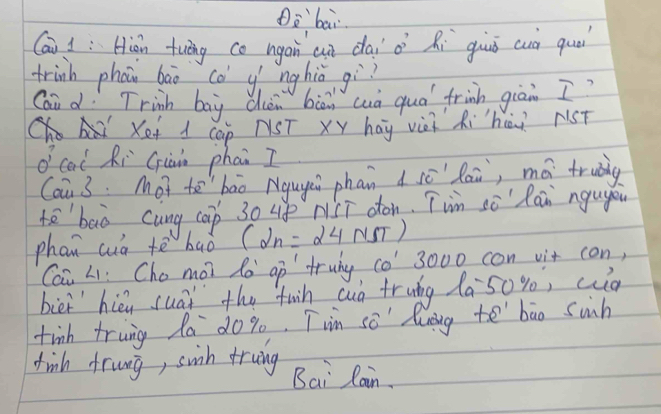 Đề bài.
Câu 1: Hiện tượng co ngắn cực đại ở kì giữa của quá
trình phân bào có ý nghĩa gì?
Câu 2: Trình bày diễn biến của quá trình giảm I?
Cho bài Xét 1 cặp NST XY hãy viết kí hiệu NST
ở các kì Giảm phân I
Câu 3: Một tế bào Nguyên phân 1 số lần, môi trường
tế bào cung cấp 3048 NST đơn. Tìm số lần nguyên
phân của tế bào (2n = 24 NST)
Câu 4: Cho một lò ấp trứng có 3000 con vịt con,
biết hiệu suất thụ tinh của trứng là 50%, của
tinh trùng là 20%. Tìm số lượng tế bào sinh
tinh trùng, sinh trứng
Bài làm.